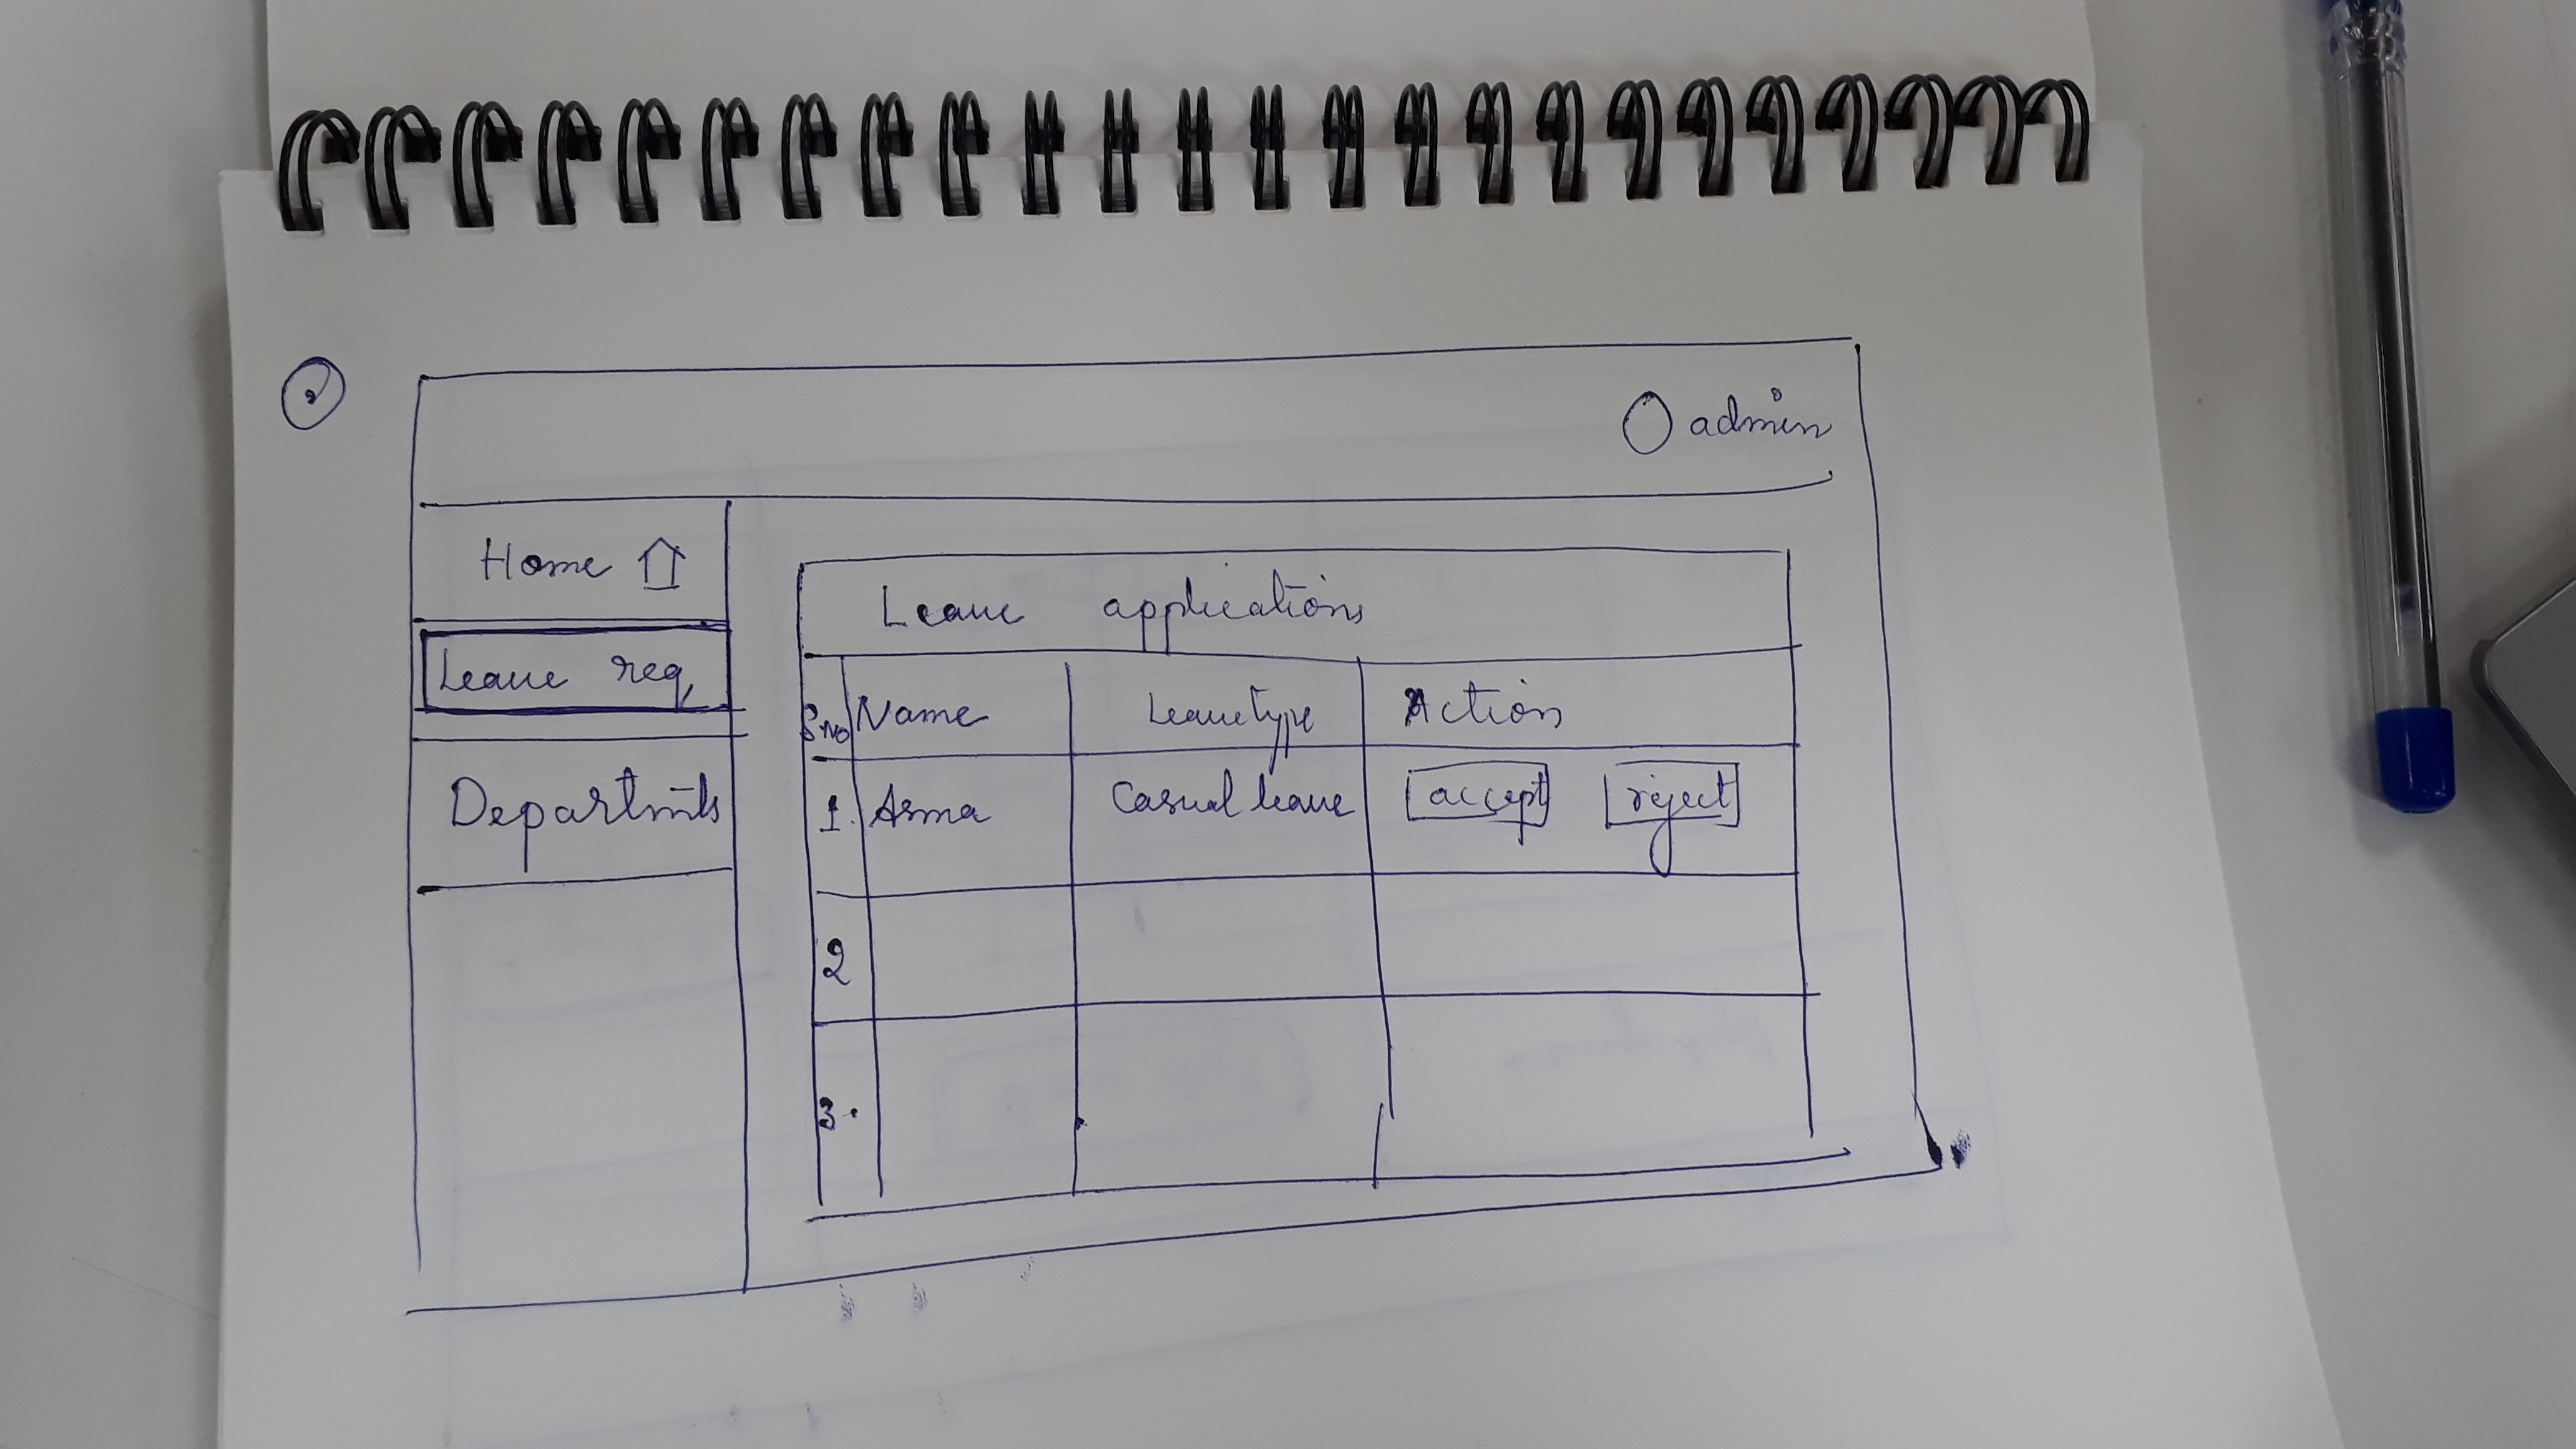 2
admin
Home
Leave req,
Departmnts
Leave applications
S.No Name Leavetype Action
1. Asma Casual leave accept reject
2
3.